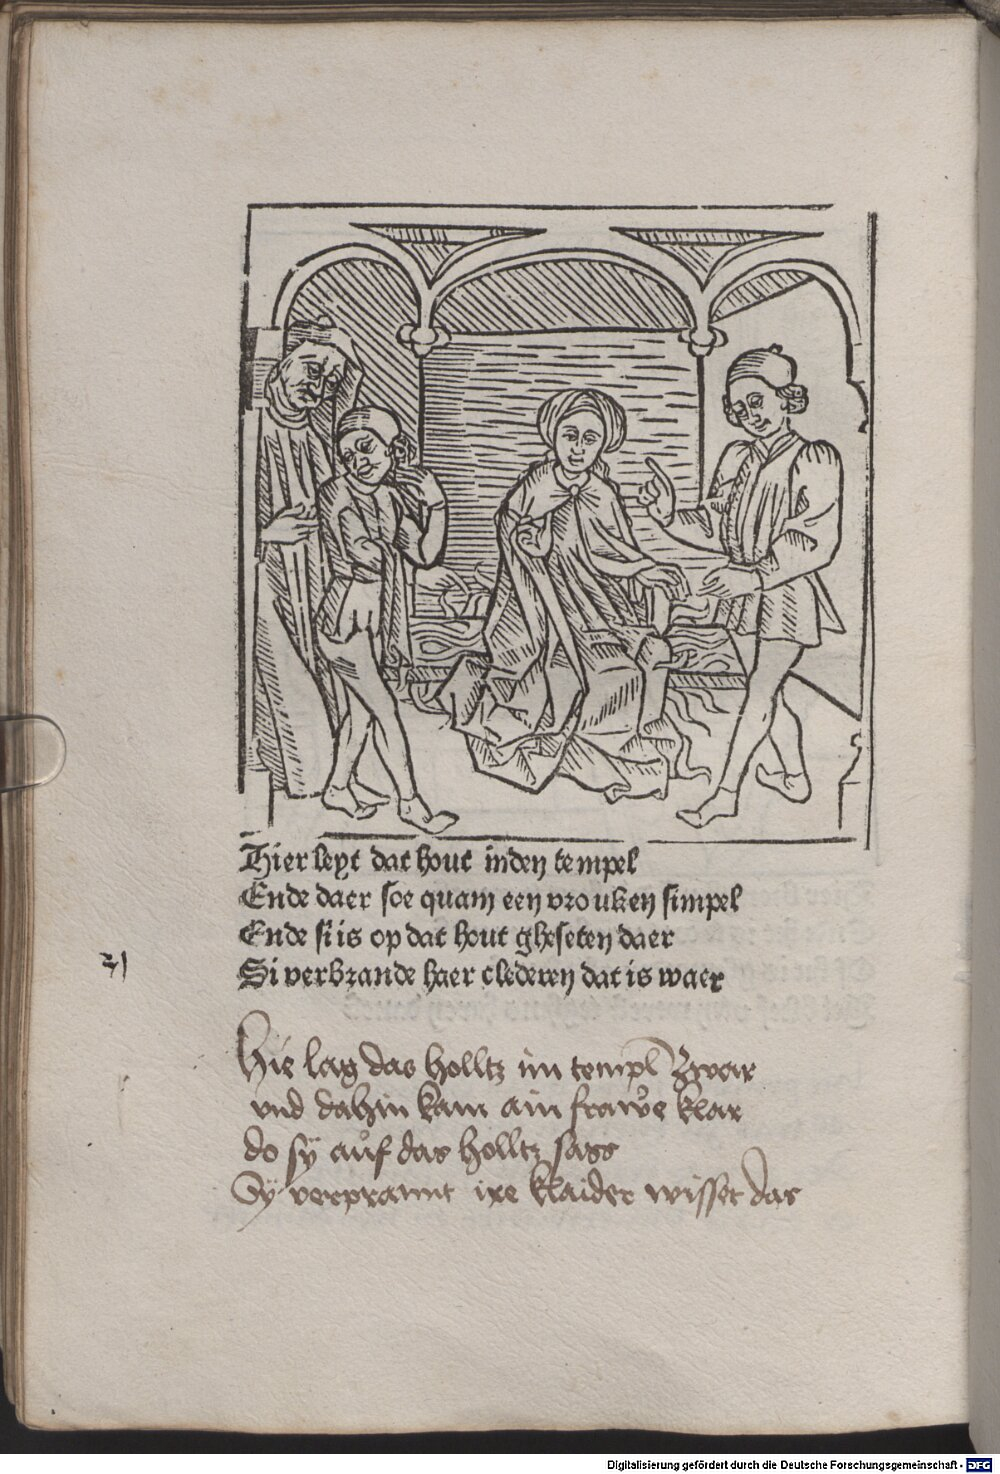 Hier leyt dat hout inden tempel
Ende daer soe quam een vrouken simpel
Ende si is op dat hout gheseten daer
21
Si verbrande haer clederen dat is waer
Hie lag das holltz im templ zwar
vnd dahin kam ain frawe klar
do sÿ auf das holltz sass
Sÿ verprannt ire klaider wisset das
Digitalisierung gefördert durch die Deutsche Forschungsgemeinschaft - DFG